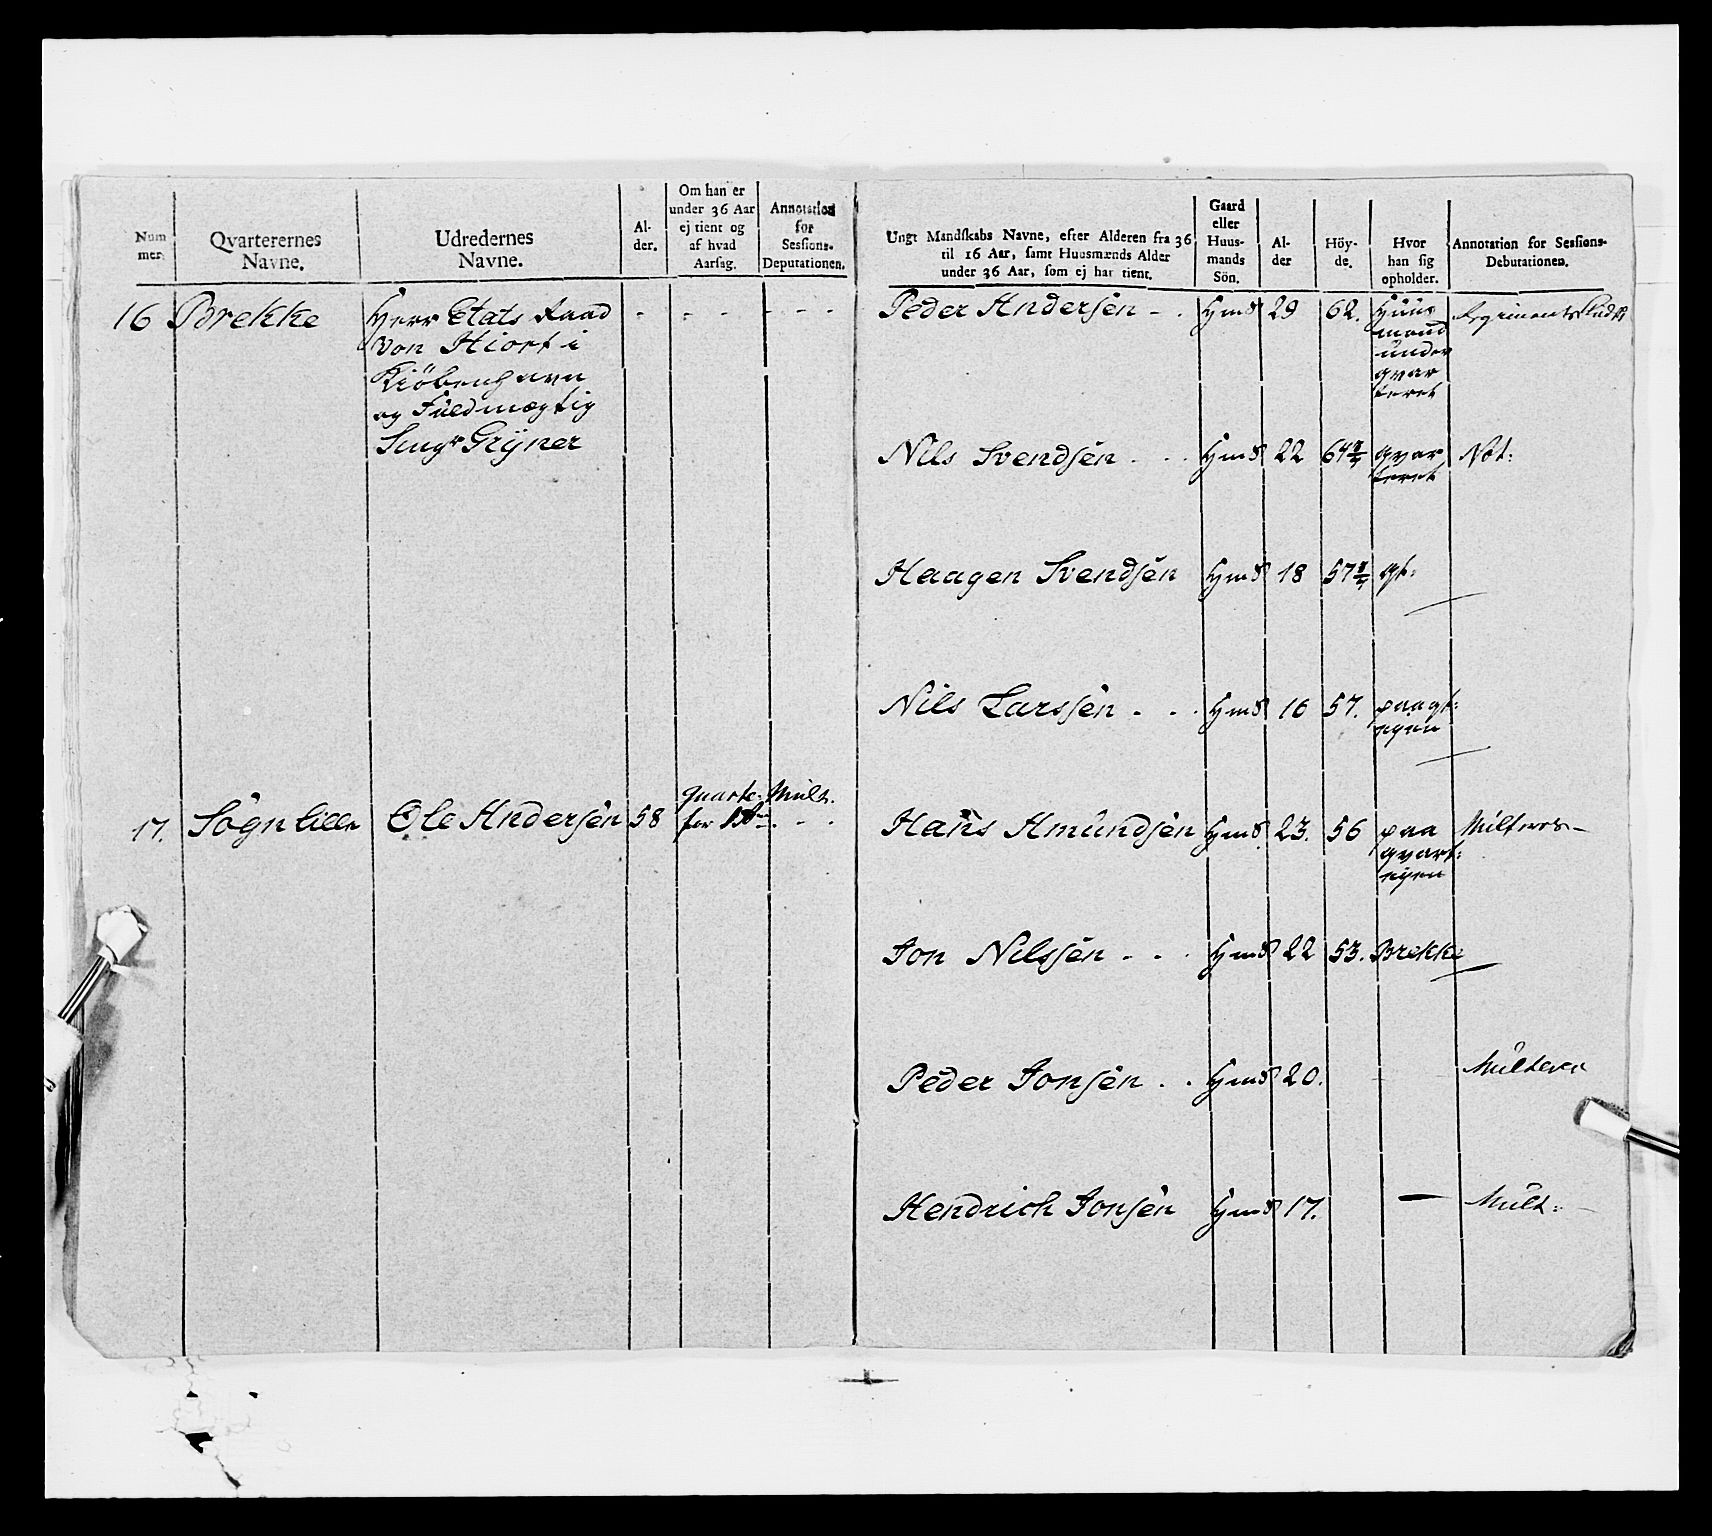 Num
mer.
Qvarterernes
Navne.
Udredernes
Navne.
Al-
der.
Om han er
under 36 Aar
ej tient og
af hvad
Aarsag.
Annotation
for
Sessions-
Deputationen.
Ungt Mandskabs Navne, efter Alderen fra 36
til 16 Aar, samt Huusmænds Alder
under 36 Aar, som ej har tient.
Gaard
eller
Huus-
mands
Sön.
Al-
der
Höy-
de.
Hvor
han sig
opholder.
Annotation for Sessions-
Deputationen.
16 Brekke
Herr Etats Raad
von Hiort i
Kiöbenhavn
og Fuldmægtig
Sengr Gryner
Peder Andersen - . Hmds 29 62.
Huus
mand
under
qvar
teret
Regiments
Nils Svendsen . . . Hmds 22 64 3/4
qvar
teret
Not:
Haagen Svendsen Hmds 18 57 3/4 qt:
Nils Larssen - . . Hmds 16 57. paa qt:
egen
17. Sogn Ole Andersen 58
for
Mult.
Hans Amundsen Hmds. 23. 56 paa
qvart:
eyen
Jon Nilssen . . . Hmds 22 53. Brekke
Peder Jonsen . . Hmds 20.
Hendrich Jonsen Hmds 17. — Mult: